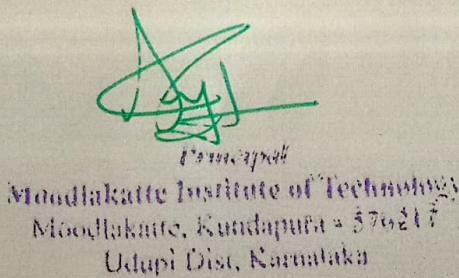 Principal
Moodlakatte Institute of Technology
Moodlakatte, Kundapura - 576217
Udupi Dist, Karnataka